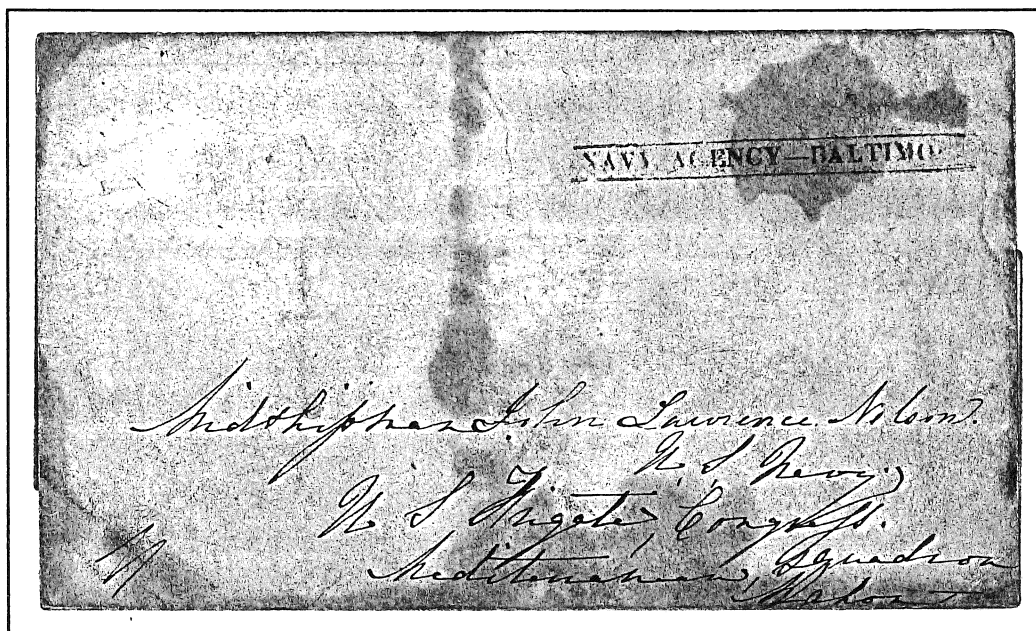 NAVY AGENCY—BALTIMO
Midshipman John Lawrence Nelson.
U S Navy
U S Frigate Congress.
Mediteranean Squadron
Mahon